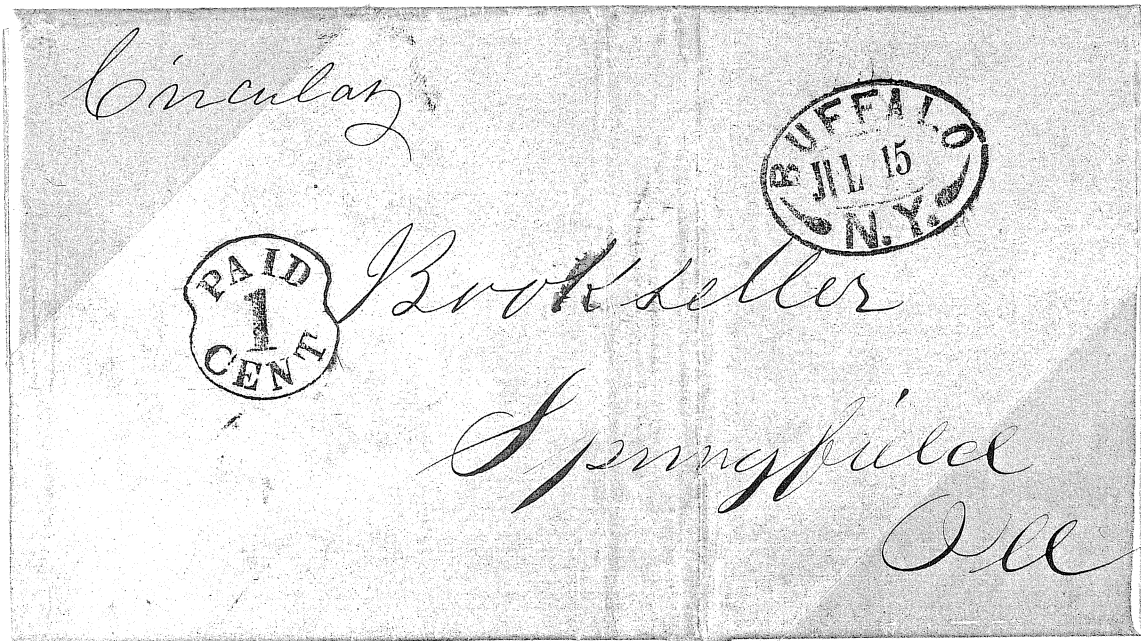 Circular
BUFFALO
JUL 15
N.Y.
PAID
1
CENT
Bookseller
Springfield
Ill